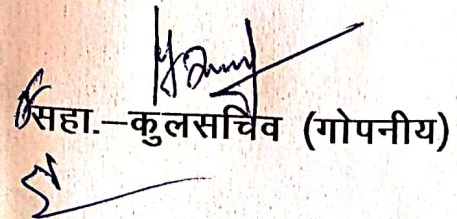 सहा.–कुलसचिव (गोपनीय)